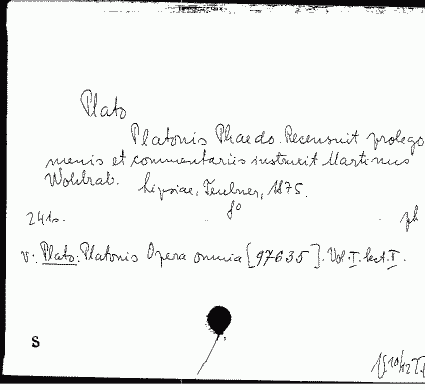 Plato
Platonis Phaedo. Recensuit prolego
menis et commentariis instruxit Martinus
Wohlrab. Lipsiae, Teubner, 1875.
8°
241s.
v: Plato: Platonis Opera omnia [97635]. Vol. I. Sect. I.
S